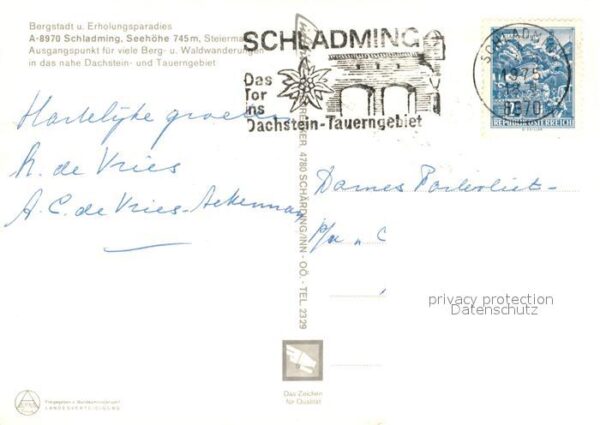 Bergstadt u. Erholungsparadies
A-8970 Schladming, Seehöhe 745m, Steiermark
Ausgangspunkt für viele Berg- u. Waldwanderungen
in das nahe Dachstein- und Tauerngebiet
SCHLADMING
Das
Tor
ins
Dachstein-Tauerngebiet
SCHLADMING
8970
REPUBLIK ÖSTERREICH
Hartelijke groeten
R. de Vries
A. C. de Vries-Ackerman
4780 SCHÄRDING/INN - OÖ. - TEL. 2329
Dames
privacy protection
Datenschutz
Das Zeichen
für Qualität
LANDESVERTEIDIGUNG